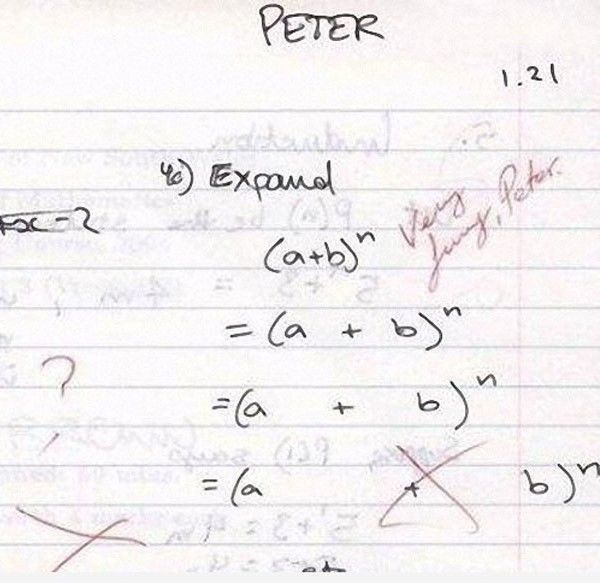 PETER
1.21
4c) Expand
(a+b)ⁿ
Very funny, Peter.
= (a + b)ⁿ
?
=(a + b)ⁿ
= (a + b)ⁿ